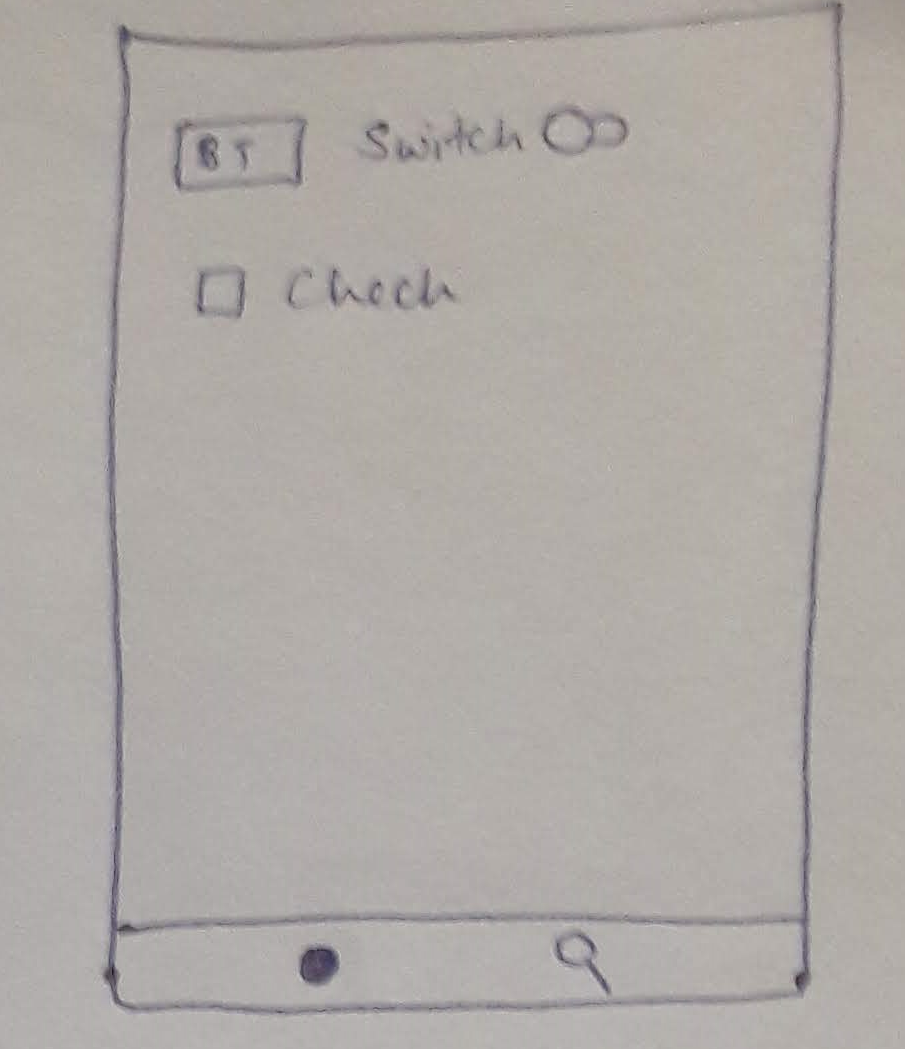 BT Switch
Check